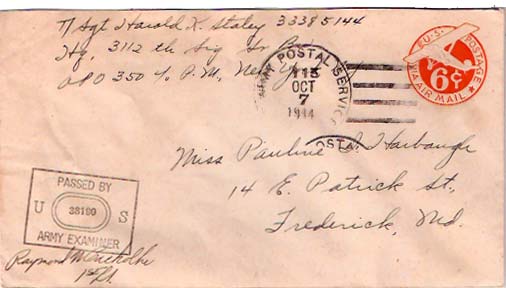 T/Sgt Harold K. Staley 33385144
Hq. 3112 th Sig Sv
APO 350 c/o P.M., New
ARMY POSTAL SERVICE
115
OCT
7
1944
POSTAL
U.S. POSTAGE
6¢
VIA AIR MAIL
Miss Pauline Harbaugh
14 E. Patrick St.,
Frederick, Md.
PASSED BY
U 38180 S
ARMY EXAMINER
Raymond
1st Lt.